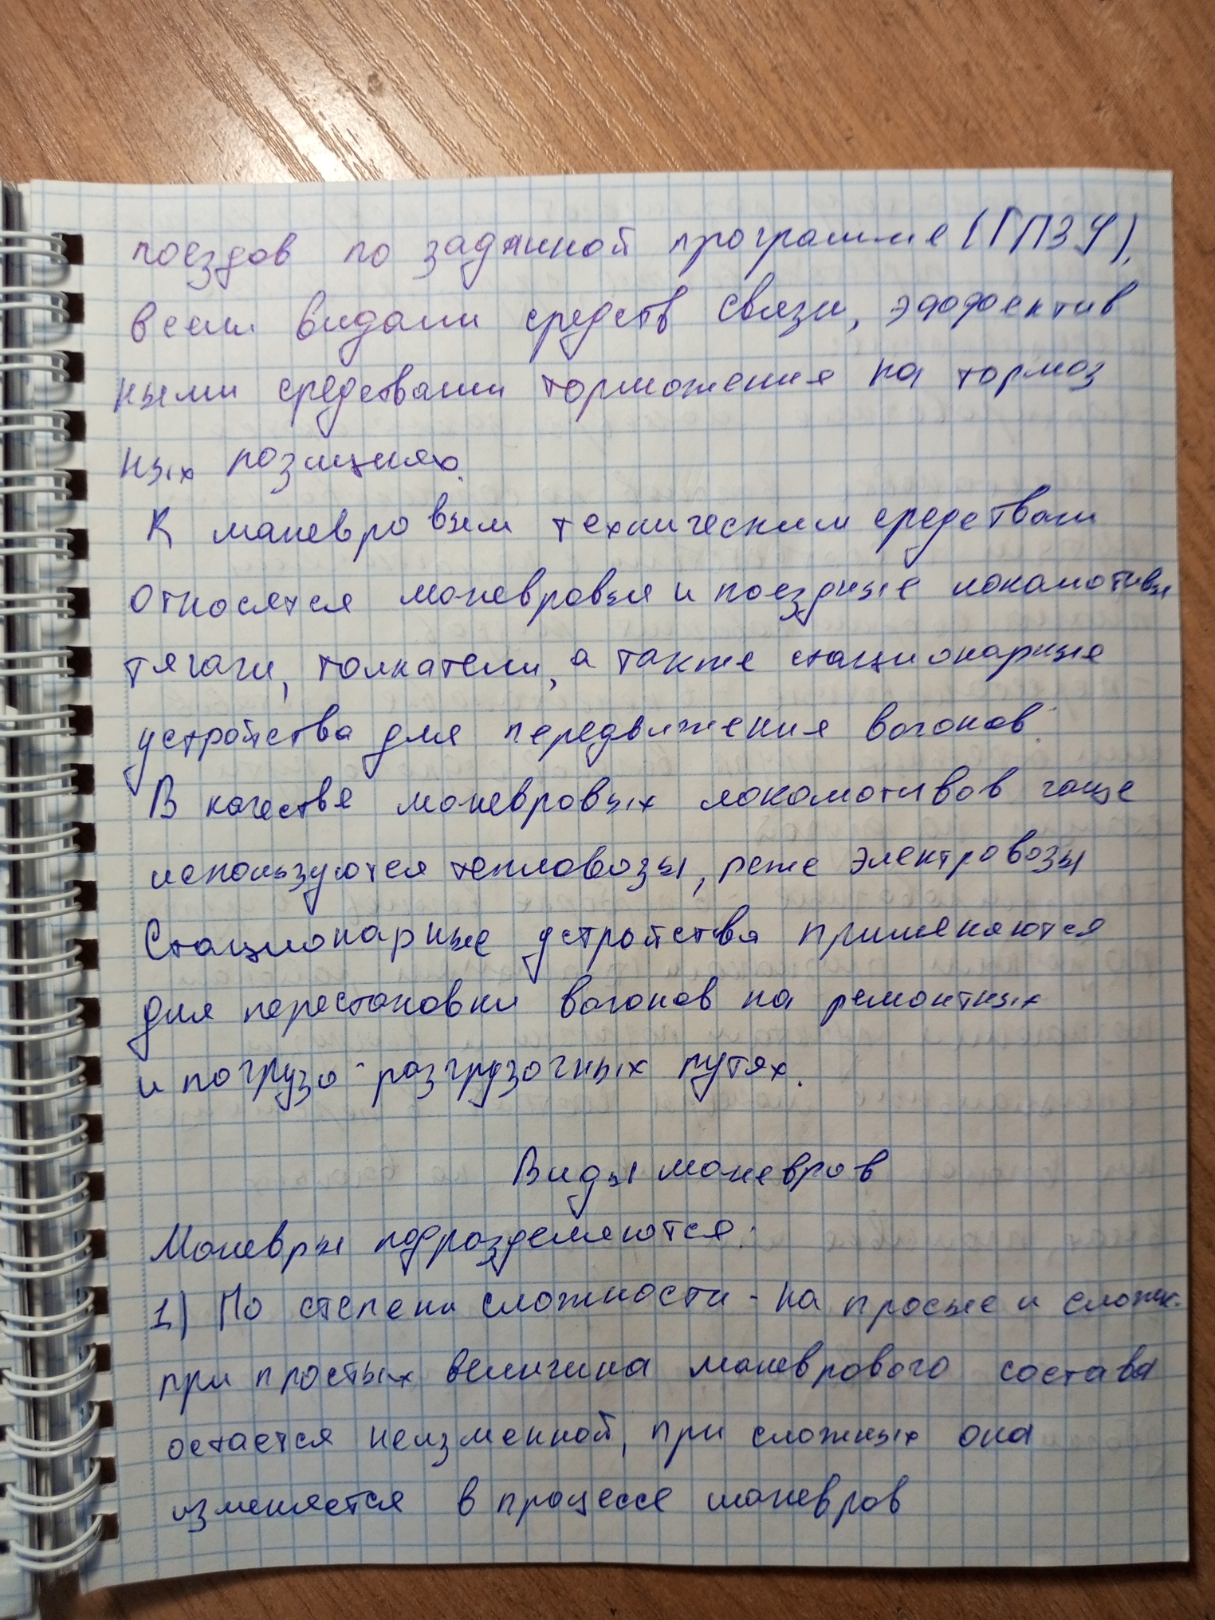 поездов по заданной программе (ГПЗУ),
всеми видами средств связи, эффектив
ными средствами торможения на тормоз
ных позициях.
К маневровым техническим средствам
относятся маневровые и поездные локомотивы
тягачи, толкатели, а также стационарные
устройства для передвижения вагонов.
В качестве маневровых локомотивов чаще
используются тепловозы, реже электровозы
Стационарные устройства применяются
для перестановки вагонов на ремонтных
и погрузо-разгрузочных путях.
Виды маневров
Маневры подразделяются:
1) По степени сложности - на просые и сложн.
при простых величина маневрового состава
остается неизменной, при сложных она
изменяется в процессе маневров